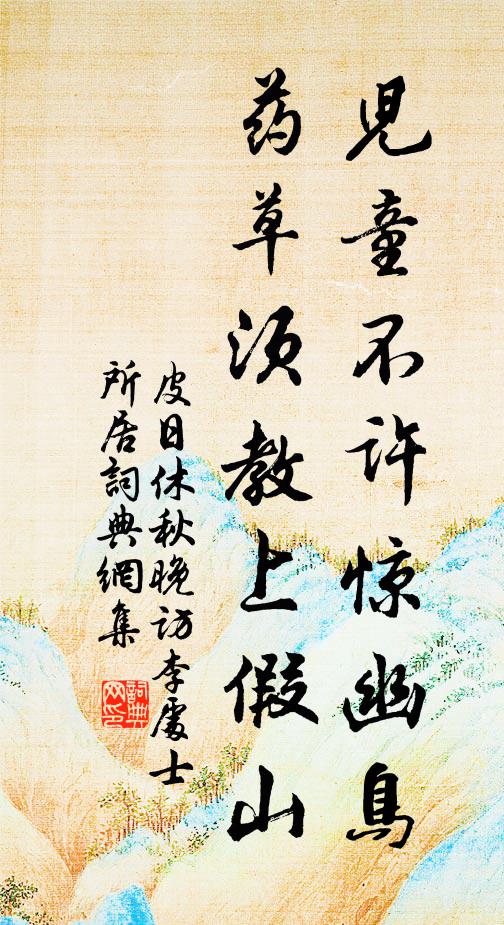 兒童不许惊幽鳥
药草須教上假山
皮日休秋晚访李處士
所居詞典網集
詞典
网印